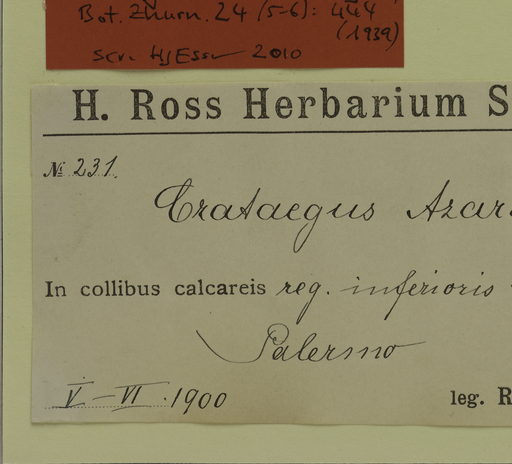 Bot. Zhurn. 24 (5-6): 444
(1939)
Scr. HJEsser 2010
H. Ross Herbarium S
№ 231.
Crataegus Azar
In collibus calcareis reg. inferioris
Palermo
V-VI.1900
leg. R